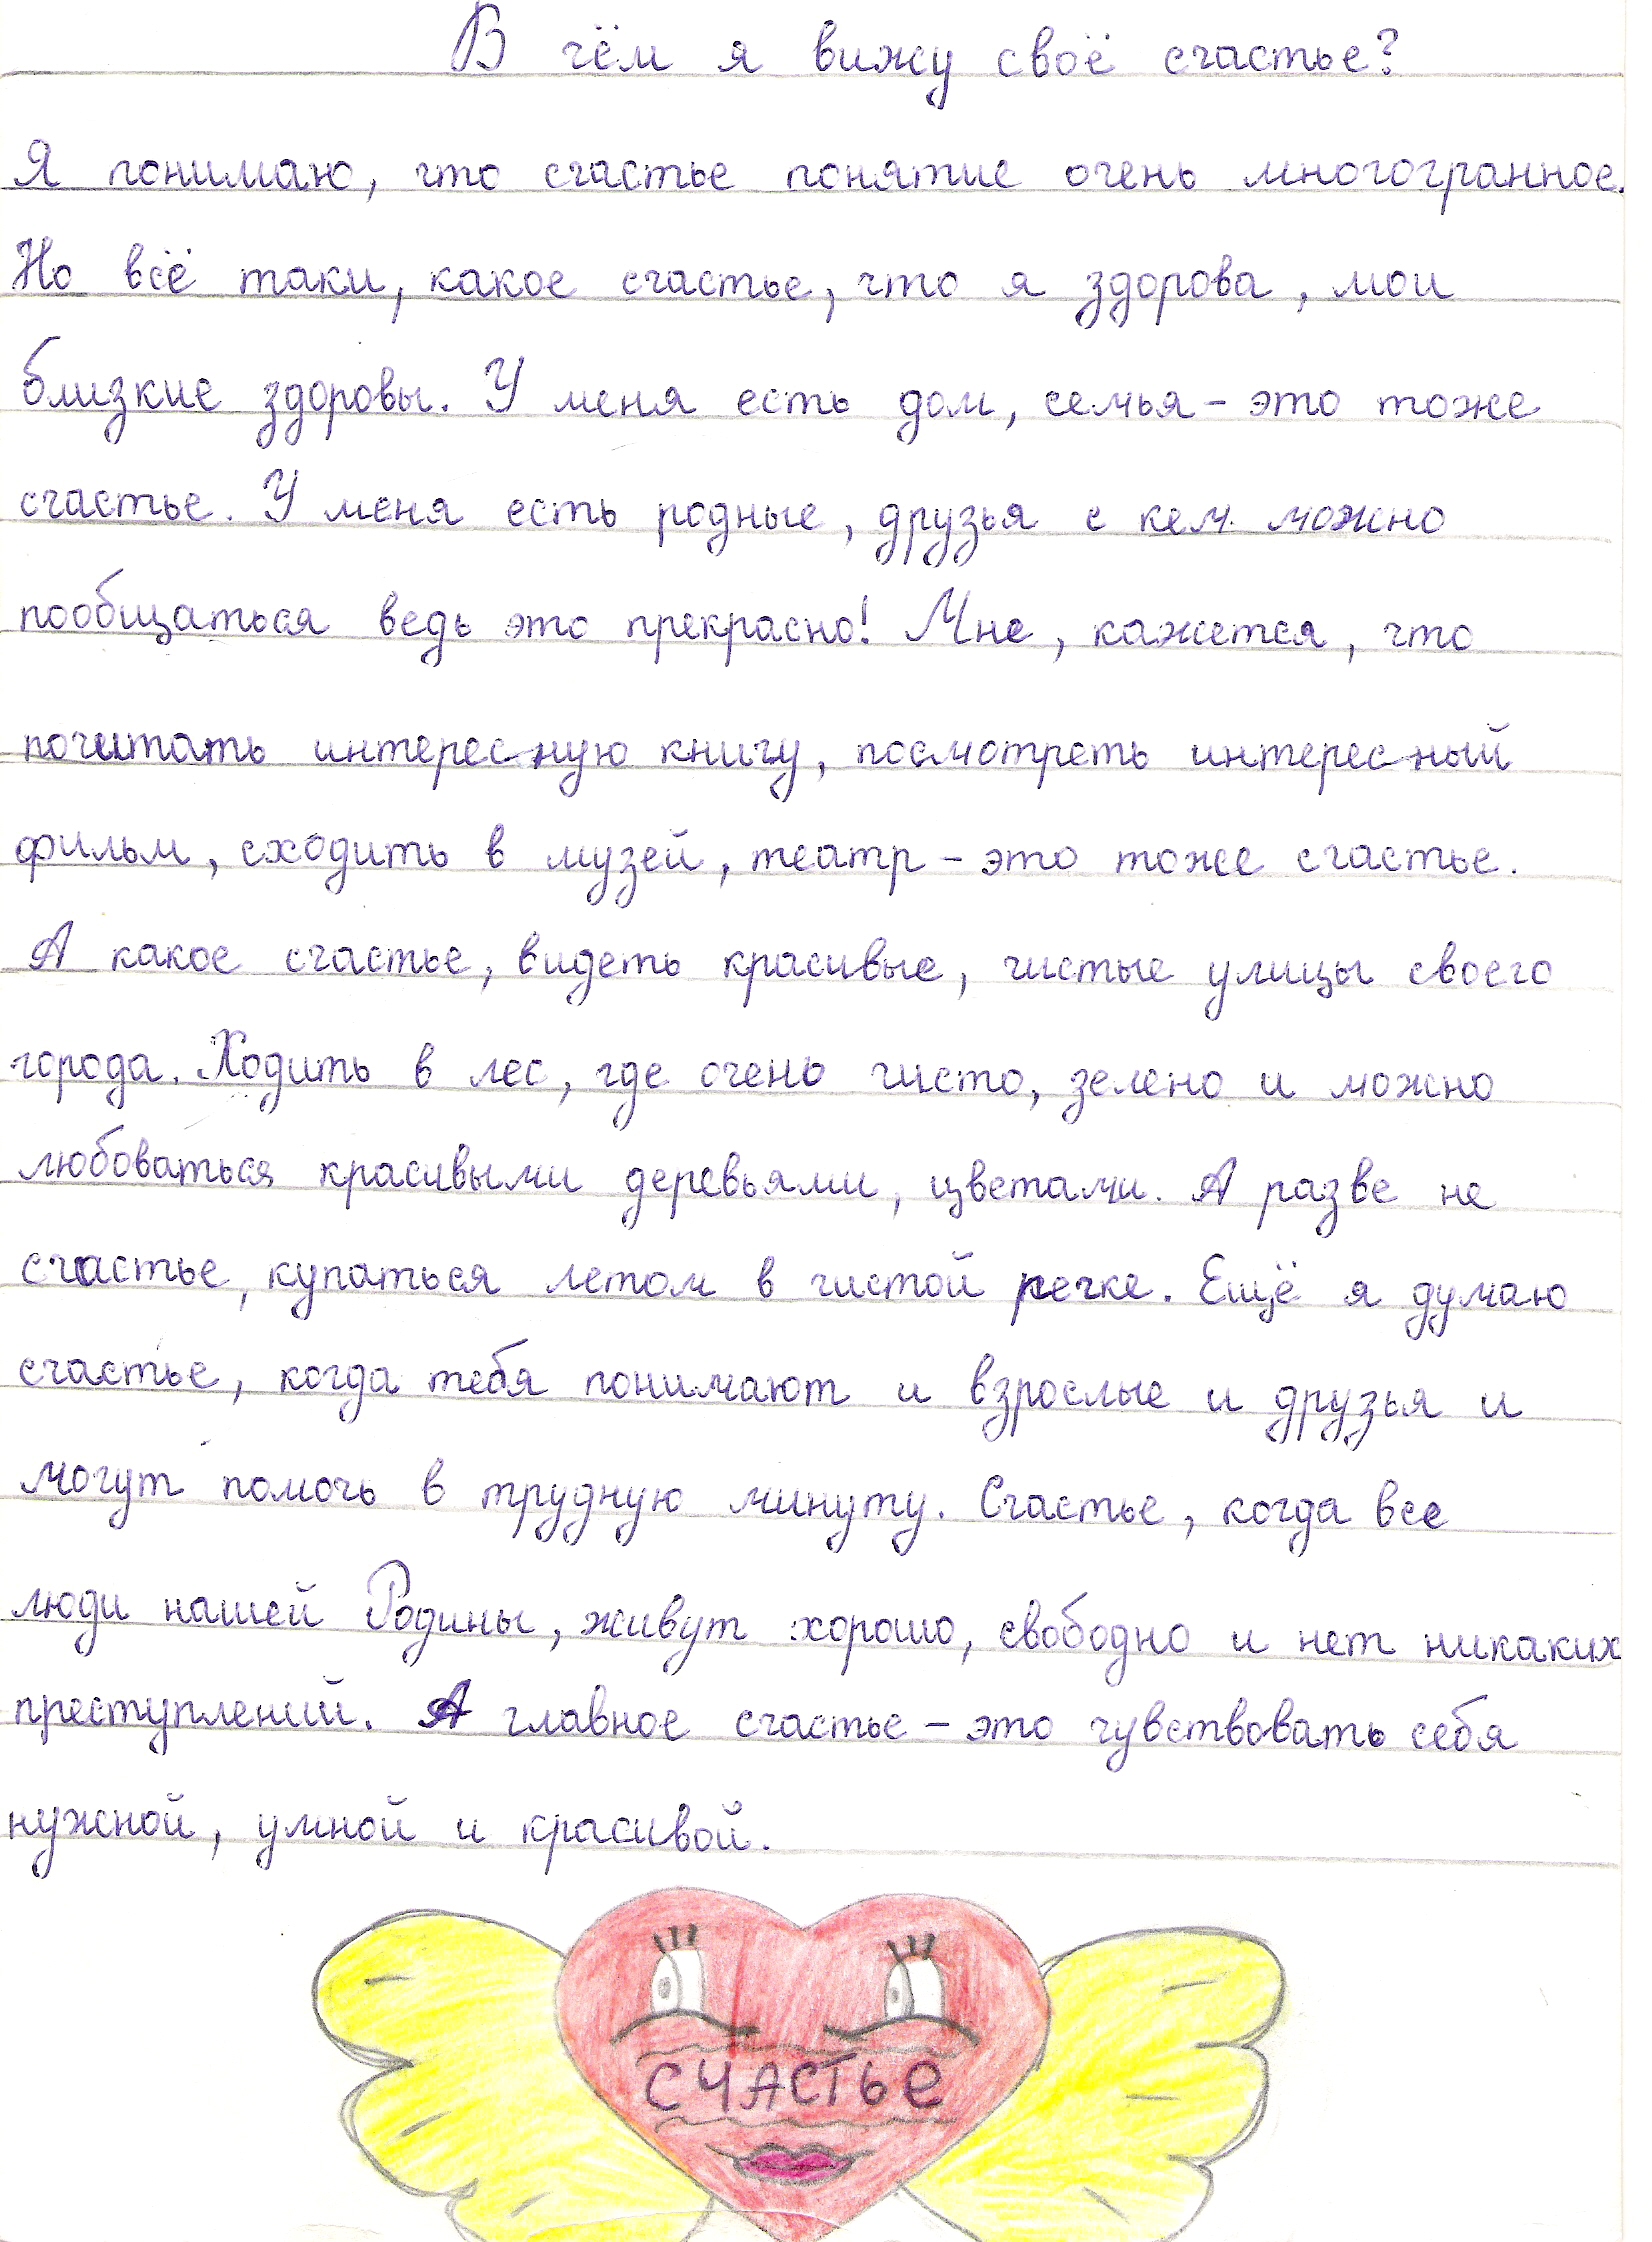 В чём я вижу своё счастье?
Я понимаю, что счастье понятие очень многогранное.
Но всё таки, какое счастье, что я здорова, мои
близкие здоровы. У меня есть дом, семья - это тоже
счастье. У меня есть родные, друзья с кем можно
пообщаться ведь это прекрасно! Мне, кажется, что
почитать интересную книгу, посмотреть интересный
фильм, сходить в музей, театр - это тоже счастье.
А какое счастье, видеть красивые, чистые улицы своего
города. Ходить в лес, где очень чисто, зелено и можно
любоваться красивыми деревьями, цветами. А разве не
счастье, купаться летом в чистой речке. Ещё я думаю
счастье, когда тебя понимают и взрослые и друзья и
могут помочь в трудную минуту. Счастье, когда все
люди нашей Родины, живут хорошо, свободно и нет никаких
преступлений. А главное счастье - это чувствовать себя
нужной, умной и красивой.
СЧАСТЬЕ